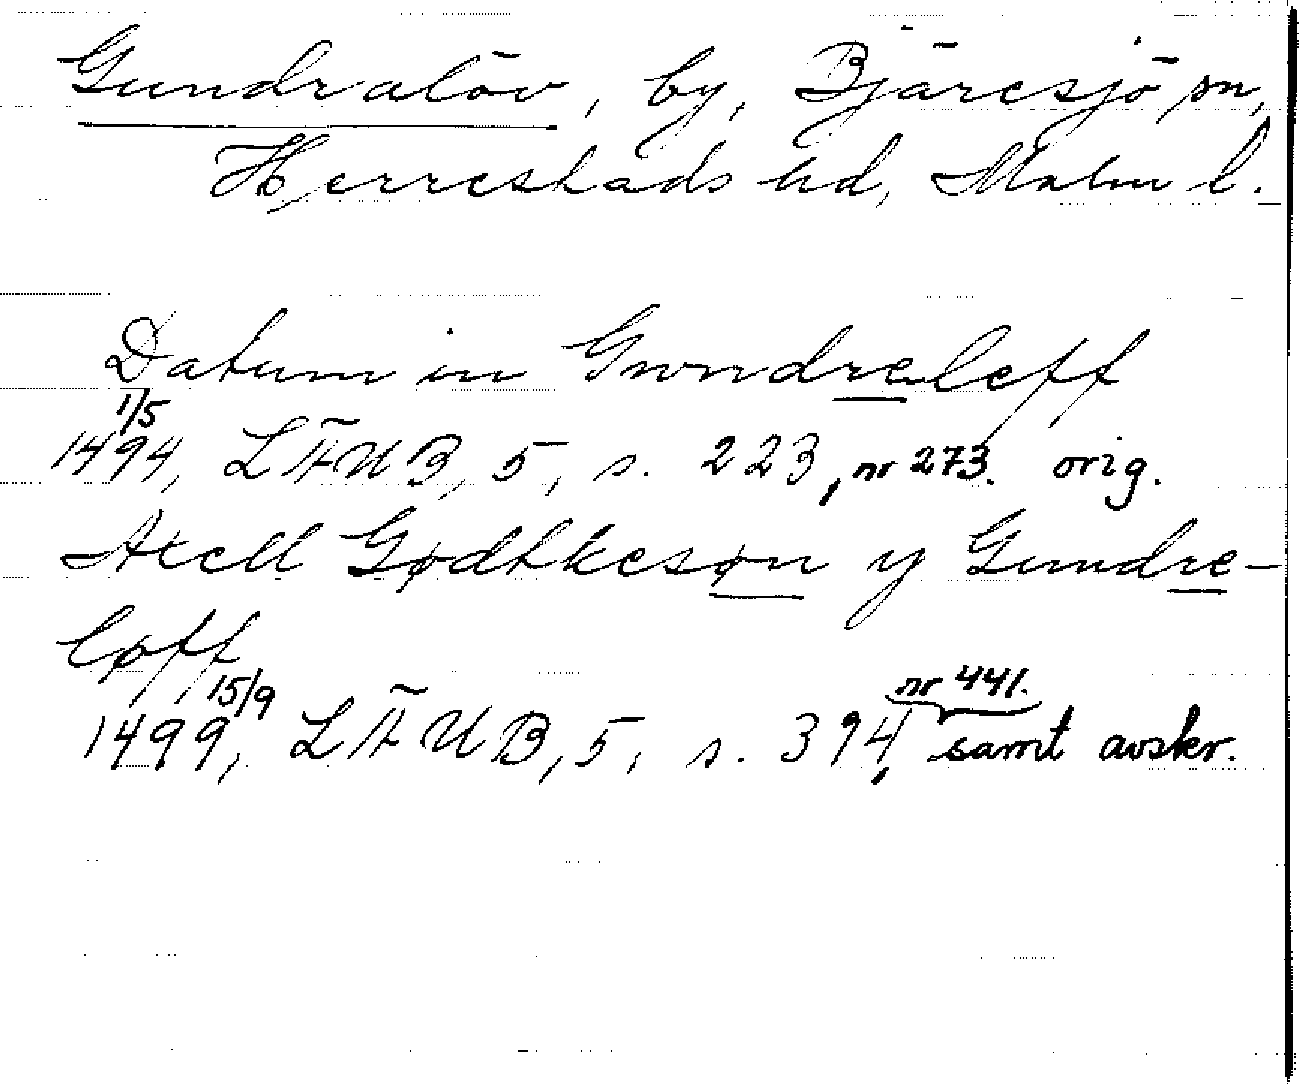 Gundralöv, by, Bjäresjö sn,
Herrestads hd, Malm l.
Datum in Gwndreleff
1/5
1494, LÄUB, 5, s. 223, nr 273. orig.
Axell Gødtkesøn y Gundre-
løff
15/9
nr 441.
1499, LÄUB, 5, s. 394, samt avskr.